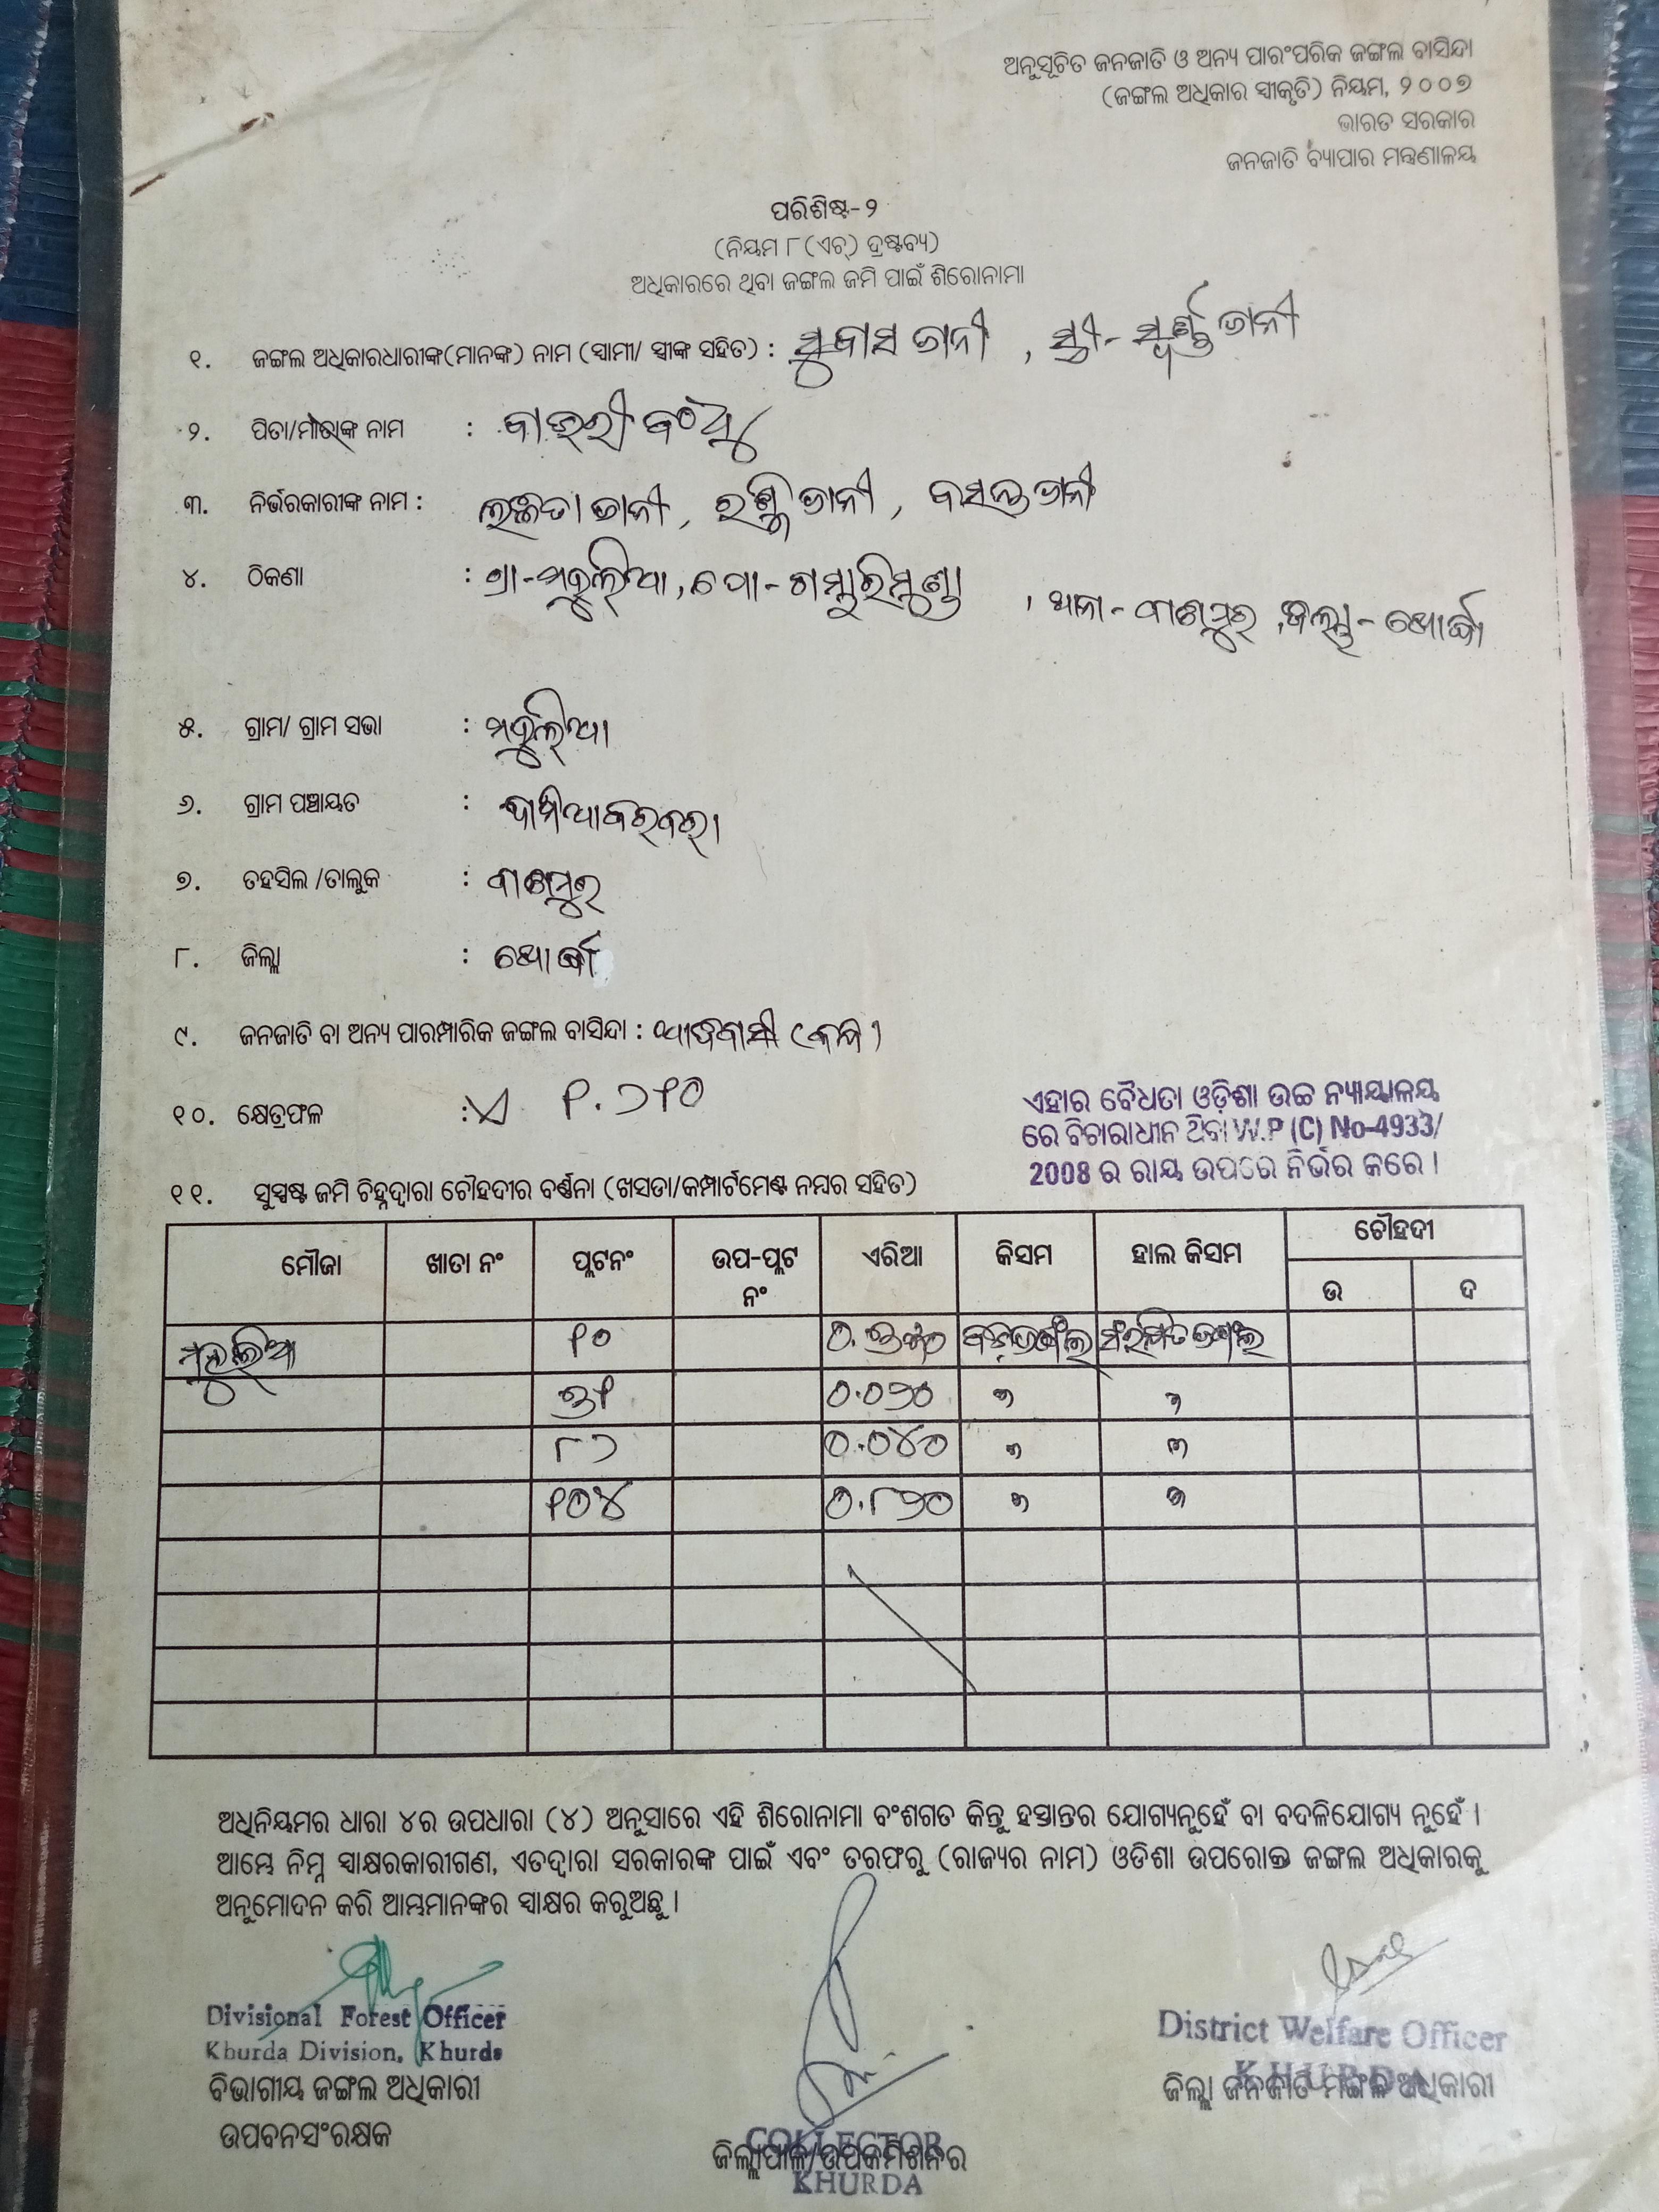 ଅନୁସୂଚିତ ଜନଜାତି ଓ ଅନ୍ୟ ପାରଂପରିକ ଜଙ୍ଗଲ ବାସିନ୍ଦା
(ଜଙ୍ଗଲ ଅଧିକାର ସ୍ୱୀକୃତି) ନିୟମ, ୨୦୦୭
ଭାରତ ସରକାର
ଜନଜାତି ବ୍ୟାପାର ମନ୍ତ୍ରଣାଳୟ
ପରିଶିଷ୍ଟ-୨
(ନିୟମ ୮(ଏଚ୍) ଦ୍ରଷ୍ଟବ୍ୟ)
ଅଧିକାରରେ ଥିବା ଜଙ୍ଗଲ ଜମି ପାଇଁ ଶିରୋନାମା
୧. ଜଙ୍ଗଲ ଅଧିକାରଧାରୀଙ୍କ(ମାନଙ୍କ) ନାମ (ସ୍ୱାମୀ/ ସ୍ତ୍ରୀଙ୍କ ସହିତ) : ସୁବାସ ଜାନୀ , ସ୍ତ୍ରୀ-
୨. ପିତା/ମାତାଙ୍କ ନାମ :
୩. ନିର୍ଭରକାରୀଙ୍କ ନାମ : ଜାନୀ, ଜାନୀ, ବସନ୍ତ ଜାନୀ
୪. ଠିକଣା : ଗ୍ରା-ମୁକୁଲିଆ, ପୋ-ଗମ୍ଭାରିମୁଣ୍ଡା , ଥାନା-ବାଣପୁର, ଜିଲ୍ଲା-ଖୋର୍ଦ୍ଧା
୫. ଗ୍ରାମ/ ଗ୍ରାମ ସଭା :
୬. ଗ୍ରାମ ପଞ୍ଚାୟତ :
୭. ତହସିଲ /ତାଲୁକ : ବାଣପୁର
୮. ଜିଲ୍ଲା : ଖୋର୍ଦ୍ଧା
୯. ଜନଜାତି ବା ଅନ୍ୟ ପାରମ୍ପାରିକ ଜଙ୍ଗଲ ବାସିନ୍ଦା : ଆଦିବାସୀ (କନ୍ଧ)
୧୦. କ୍ଷେତ୍ରଫଳ : ୧.୨୧୦
ଏହାର ବୈଧତା ଓଡ଼ିଶା ଉଚ୍ଚ ନ୍ୟାୟାଳୟ
ରେ ବିଚାରାଧୀନ ଥିବା W.P (C) No-4933/
2008 ର ରାୟ ଉପରେ ନିର୍ଭର କରେ ।
୧୧. ସୁସ୍ପଷ୍ଟ ଜମି ଚିହ୍ନଦ୍ୱାରା ଚୌହଦୀର ବର୍ଣ୍ଣନା (ଖସଡା/କମ୍ପାର୍ଟମେଣ୍ଟ ନମ୍ବର ସହିତ)
ମୌଜା ଖାତା ନଂ ପ୍ଲଟନଂ ଉପ-ପ୍ଲଟ ନଂ ଏରିଆ କିସମ ହାଲ କିସମ ଚୌହଦୀ
ଉ ଦ
୧୦ ସଂରକ୍ଷିତ ଜଙ୍ଗଲ
୩୧ ୦.୦୨୦ ୨ ୨
୮୨ ୦.୦୪୦ ୨ ୨
୧୦୪ ୦.୮୨୦ ୨ ୨
ଅଧିନିୟମର ଧାରା ୪ର ଉପଧାରା (୪) ଅନୁସାରେ ଏହି ଶିରୋନାମା ବଂଶଗତ କିନ୍ତୁ ହସ୍ତାନ୍ତର ଯୋଗ୍ୟନୁହେଁ ବା ବଦଳିଯୋଗ୍ୟ ନୁହେଁ ।
ଆମ୍ଭେ ନିମ୍ନ ସ୍ୱାକ୍ଷରକାରୀଗଣ, ଏତଦ୍ୱାରା ସରକାରଙ୍କ ପାଇଁ ଏବଂ ତରଫରୁ (ରାଜ୍ୟର ନାମ) ଓଡିଶା ଉପରୋକ୍ତ ଜଙ୍ଗଲ ଅଧିକାରକୁ
ଅନୁମୋଦନ କରି ଆମ୍ଭମାନଙ୍କର ସ୍ୱାକ୍ଷର କରୁଅଛୁ ।
Divisional Forest Officer
Khurda Division, Khurda
ବିଭାଗୀୟ ଜଙ୍ଗଲ ଅଧିକାରୀ
ଉପବନସଂରକ୍ଷକ
COLLECTOR
ଜିଲ୍ଲାପାଳ/ଉପକମିଶନର
KHURDA
District Welfare Officer
KHURDA
ଜିଲ୍ଲା ଜନଜାତି ମଙ୍ଗଳ ଅଧିକାରୀ